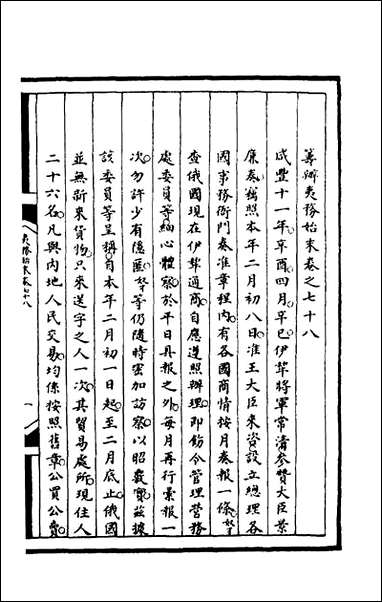 籌辦夷務始末卷之七十八
咸豐十一年辛酉四月辛巳伊犂將軍常清參贊大臣景
廉奏竊照本年二月初八日准王大臣來咨設立總理各
國事務衙門奏准章程內有各國商情按月奏報一條奴才
查俄國現在伊犂通商自應遵照辦理即飭令管理營務
處委員等細心體察於平日具報之外每月再行彙報一
次勿許少有隱匿奴才等仍隨時密加訪察以昭覈實茲據
該委員等呈稱自本年二月初一日起至二月底止俄國
並無新來貨物只來送字之人一次其貿易處所現住人
二十六名凡與內地人民交易均係按照舊章公買公賣
夷務始末卷七十八
一